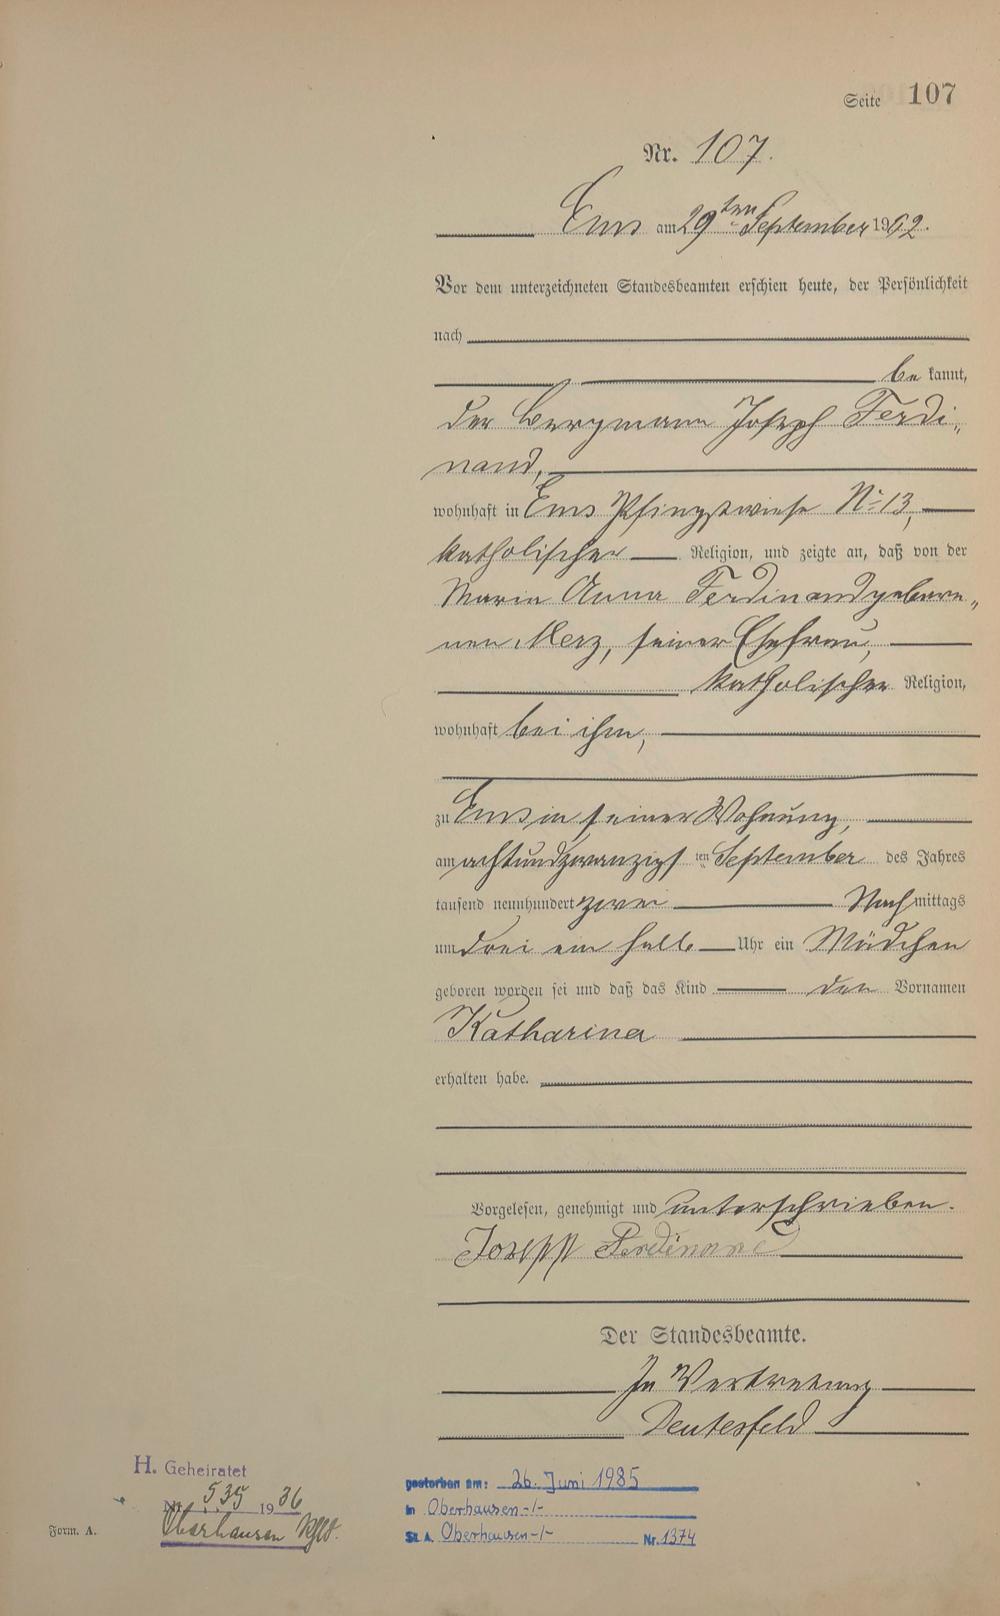 Seite 107
Nr. 107.
Ems am 29ten September 1902.
Vor dem unterzeichneten Standesbeamten erschien heute, der Persönlichkeit
nach
be kannt,
der Bergmann Joseph Ferdi„
nand,
wohnhaft in Ems Pfingstwiese No 13,
katholischer Religion, und zeigte an, daß von der
Maria Anna Ferdinand gebore„
nen Merz, seiner Ehefrau,
katholischer Religion,
wohnhaft bei ihm,
zu Ems in seiner Wohnung,
am achtundzwanzigs ten September des Jahres
tausend neunhundert zwei Nach mittags
um drei ein halb Uhr ein Mädchen
geboren worden sei und daß das Kind den Vornamen
Katharina
erhalten habe.
Vorgelesen, genehmigt und unterschrieben.
Joseph Ferdinand
Der Standesbeamte.
In Vertretung
Deutesfeld
H. Geheiratet
Nr. 535 1936
Oberhausen Rhld.
Form. A.
gestorben am: 26. Juni 1985
in Oberhausen -/-
St. A. Oberhausen -/- Nr. 1374